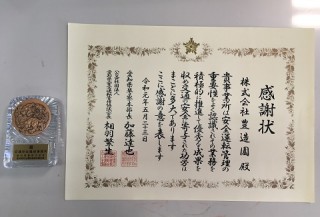 感謝状
株式会社 豊造園 殿
貴事業所は安全運転管理の
重要性をよく認識されその業務を
積極的に推進し優秀な成果を
収め交通の安全に寄与された功労は
まことに多大であります
ここに感謝の意を表します
令和元年五月二十三日
愛知県警察本部長 加藤達也
公益社団法人
相羽繁生